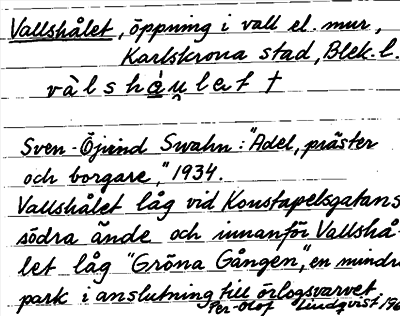 Vallshålet, öppning i vall el. mur,
Karlskrona stad, Blek. l.
Sven-Öjvind Swahn: "Adel, präster
och borgare," 1934.
Vallshålet låg vid Konstapelsgatans
södra ände och innanför Vallshå-
let låg "Gröna Gången", en mindre
park i anslutning till örlogsvarvet.
Per-Olof Lindqvist 196